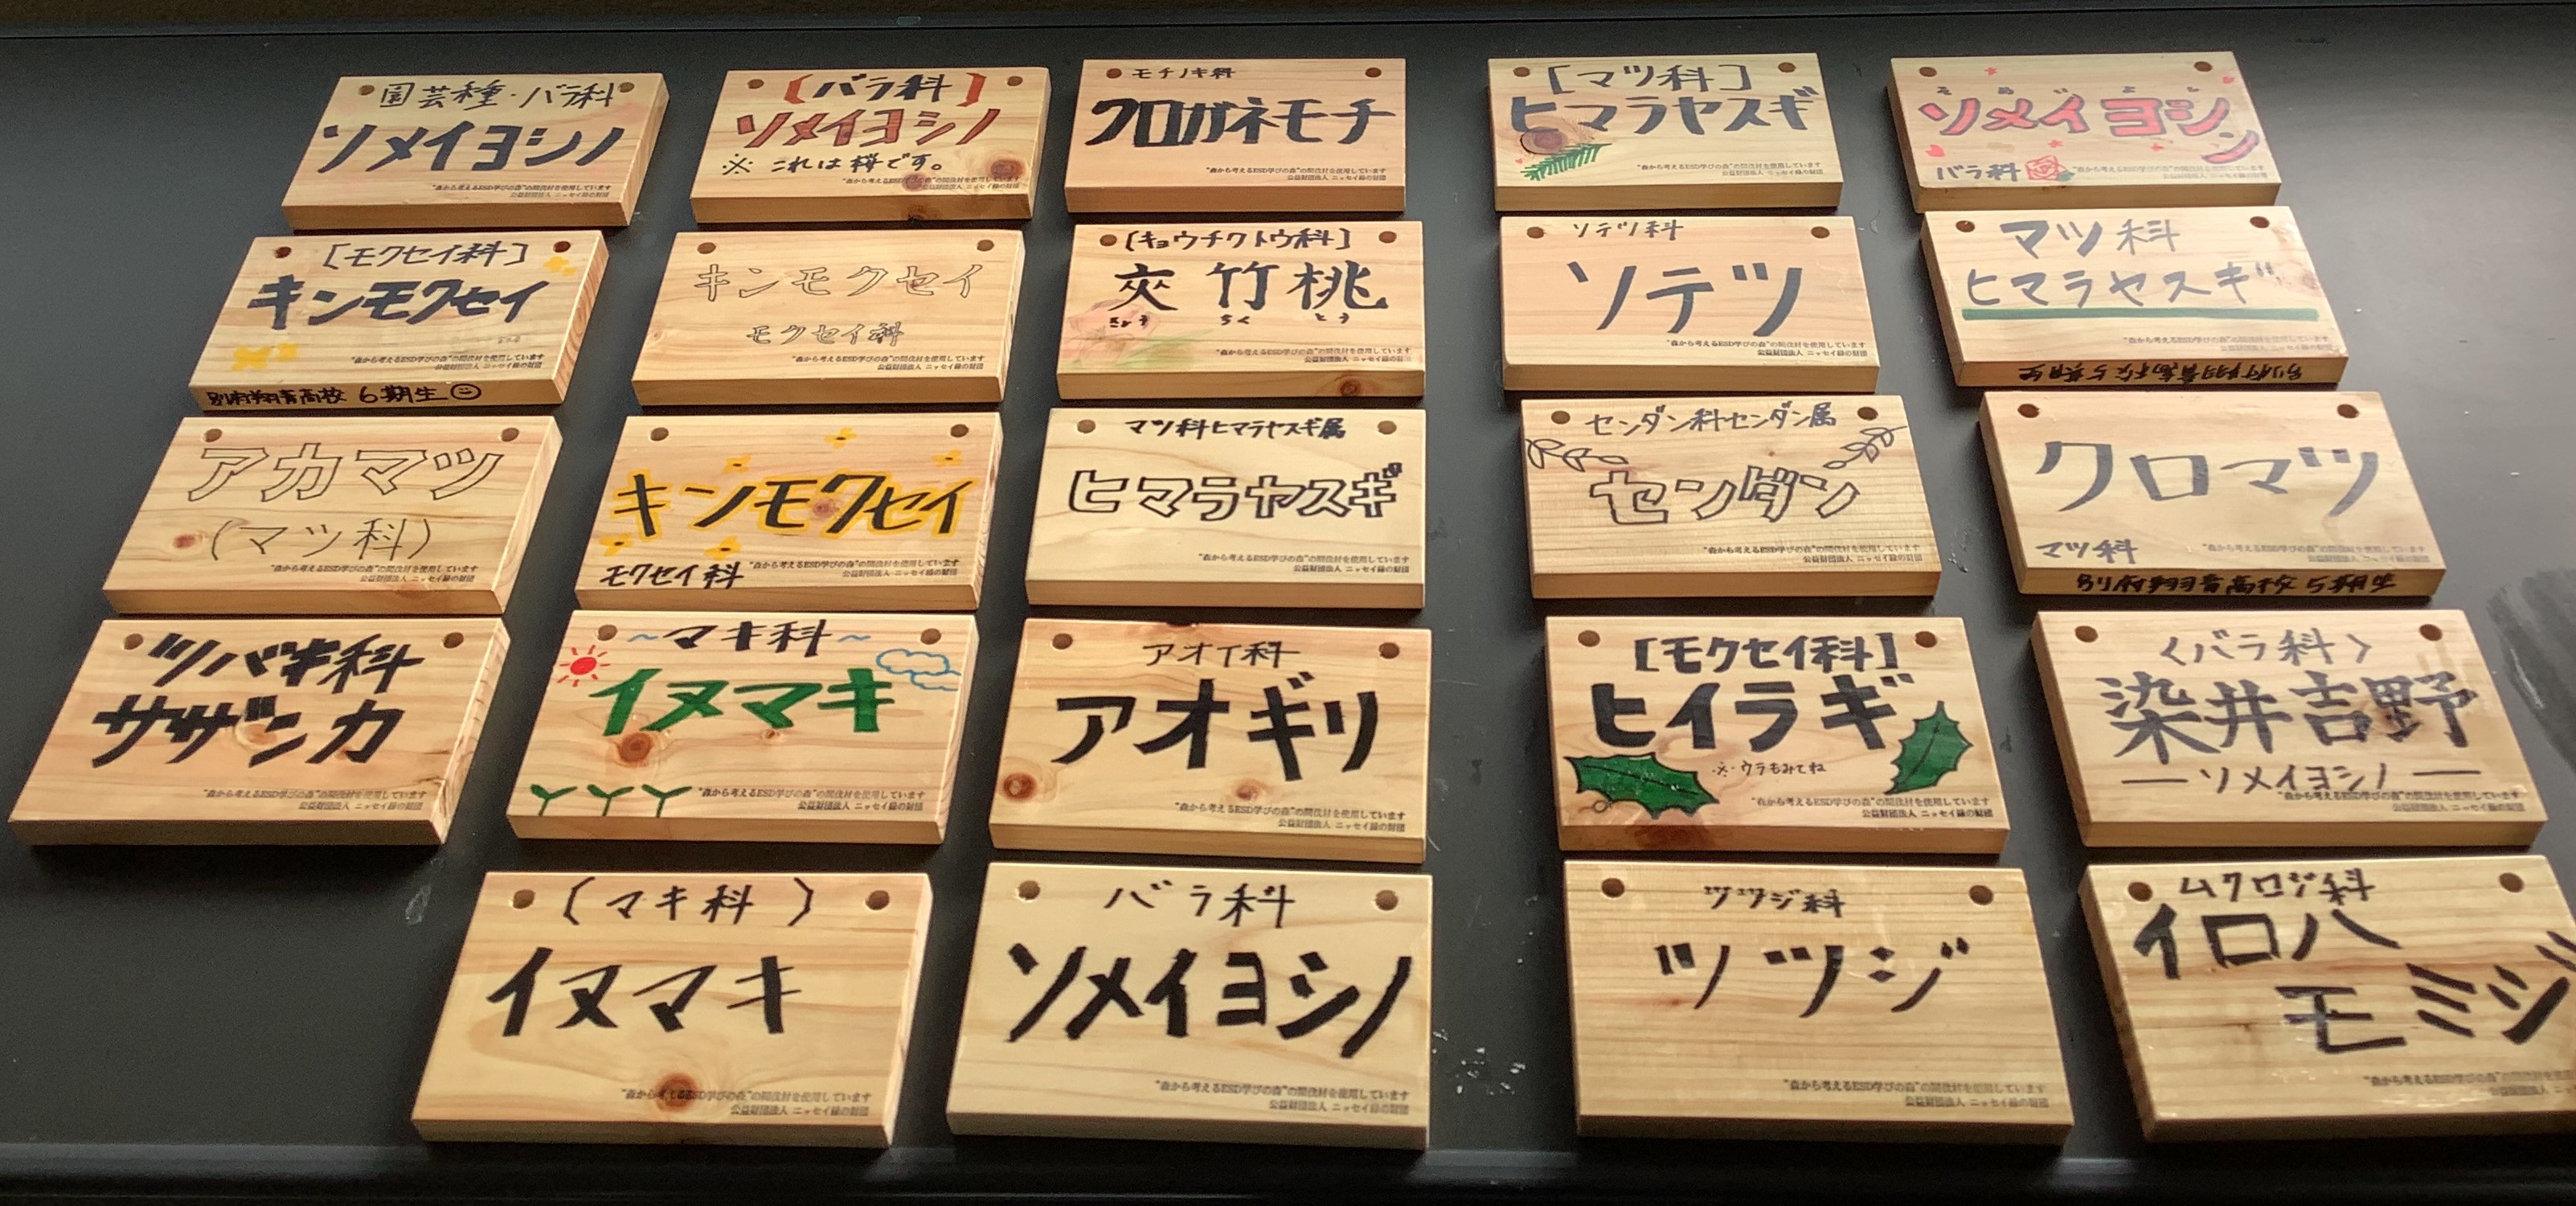 園芸種・バラ科
ソメイヨシノ
"森から考えるESD学びの森"の間伐材を使用しています
公益財団法人 ニッセイ緑の財団
[バラ科]
ソメイヨシノ
※ これは桜です。
"森から考えるESD学びの森"の間伐材を使用しています
公益財団法人 ニッセイ緑の財団
モチノキ科
クロガネモチ
"森から考えるESD学びの森"の間伐材を使用しています
公益財団法人 ニッセイ緑の財団
[マツ科]
ヒマラヤスギ
"森から考えるESD学びの森"の間伐材を使用しています
公益財団法人 ニッセイ緑の財団
そめいよし
ソメイヨシノ
バラ科
"森から考えるESD学びの森"の間伐材を使用しています
公益財団法人 ニッセイ緑の財団
[モクセイ科]
キンモクセイ
"森から考えるESD学びの森"の間伐材を使用しています
公益財団法人 ニッセイ緑の財団
別府翔青高校 6期生
キンモクセイ
モクセイ科
"森から考えるESD学びの森"の間伐材を使用しています
公益財団法人 ニッセイ緑の財団
[キョウチクトウ科]
夾竹桃
きょう ちく とう
"森から考えるESD学びの森"の間伐材を使用しています
公益財団法人 ニッセイ緑の財団
ソテツ科
ソテツ
"森から考えるESD学びの森"の間伐材を使用しています
公益財団法人 ニッセイ緑の財団
マツ科
ヒマラヤスギ
"森から考えるESD学びの森"の間伐材を使用しています
公益財団法人 ニッセイ緑の財団
別府翔青高校5期生
アカマツ
(マツ科)
"森から考えるESD学びの森"の間伐材を使用しています
公益財団法人 ニッセイ緑の財団
キンモクセイ
モクセイ科
"森から考えるESD学びの森"の間伐材を使用しています
公益財団法人 ニッセイ緑の財団
マツ科ヒマラヤスギ属
ヒマラヤスギ
"森から考えるESD学びの森"の間伐材を使用しています
公益財団法人 ニッセイ緑の財団
センダン科センダン属
センダン
"森から考えるESD学びの森"の間伐材を使用しています
公益財団法人 ニッセイ緑の財団
クロマツ
マツ科
"森から考えるESD学びの森"の間伐材を使用しています
公益財団法人 ニッセイ緑の財団
別府翔青高校5期生
ツバキ科
サザンカ
"森から考えるESD学びの森"の間伐材を使用しています
公益財団法人 ニッセイ緑の財団
~マキ科~
イヌマキ
"森から考えるESD学びの森"の間伐材を使用しています
公益財団法人 ニッセイ緑の財団
アオイ科
アオギリ
"森から考えるESD学びの森"の間伐材を使用しています
公益財団法人 ニッセイ緑の財団
[モクセイ科]
ヒイラギ
※ウラもみてね
"森から考えるESD学びの森"の間伐材を使用しています
公益財団法人 ニッセイ緑の財団
〈バラ科〉
染井吉野
―ソメイヨシノ―
"森から考えるESD学びの森"の間伐材を使用しています
公益財団法人 ニッセイ緑の財団
(マキ科)
イヌマキ
"森から考えるESD学びの森"の間伐材を使用しています
公益財団法人 ニッセイ緑の財団
バラ科
ソメイヨシノ
"森から考えるESD学びの森"の間伐材を使用しています
公益財団法人 ニッセイ緑の財団
ツツジ科
ツツジ
"森から考えるESD学びの森"の間伐材を使用しています
公益財団法人 ニッセイ緑の財団
ムクロジ科
イロハ
モミジ
"森から考えるESD学びの森"の間伐材を使用
公益財団法人 ニッセイ緑の